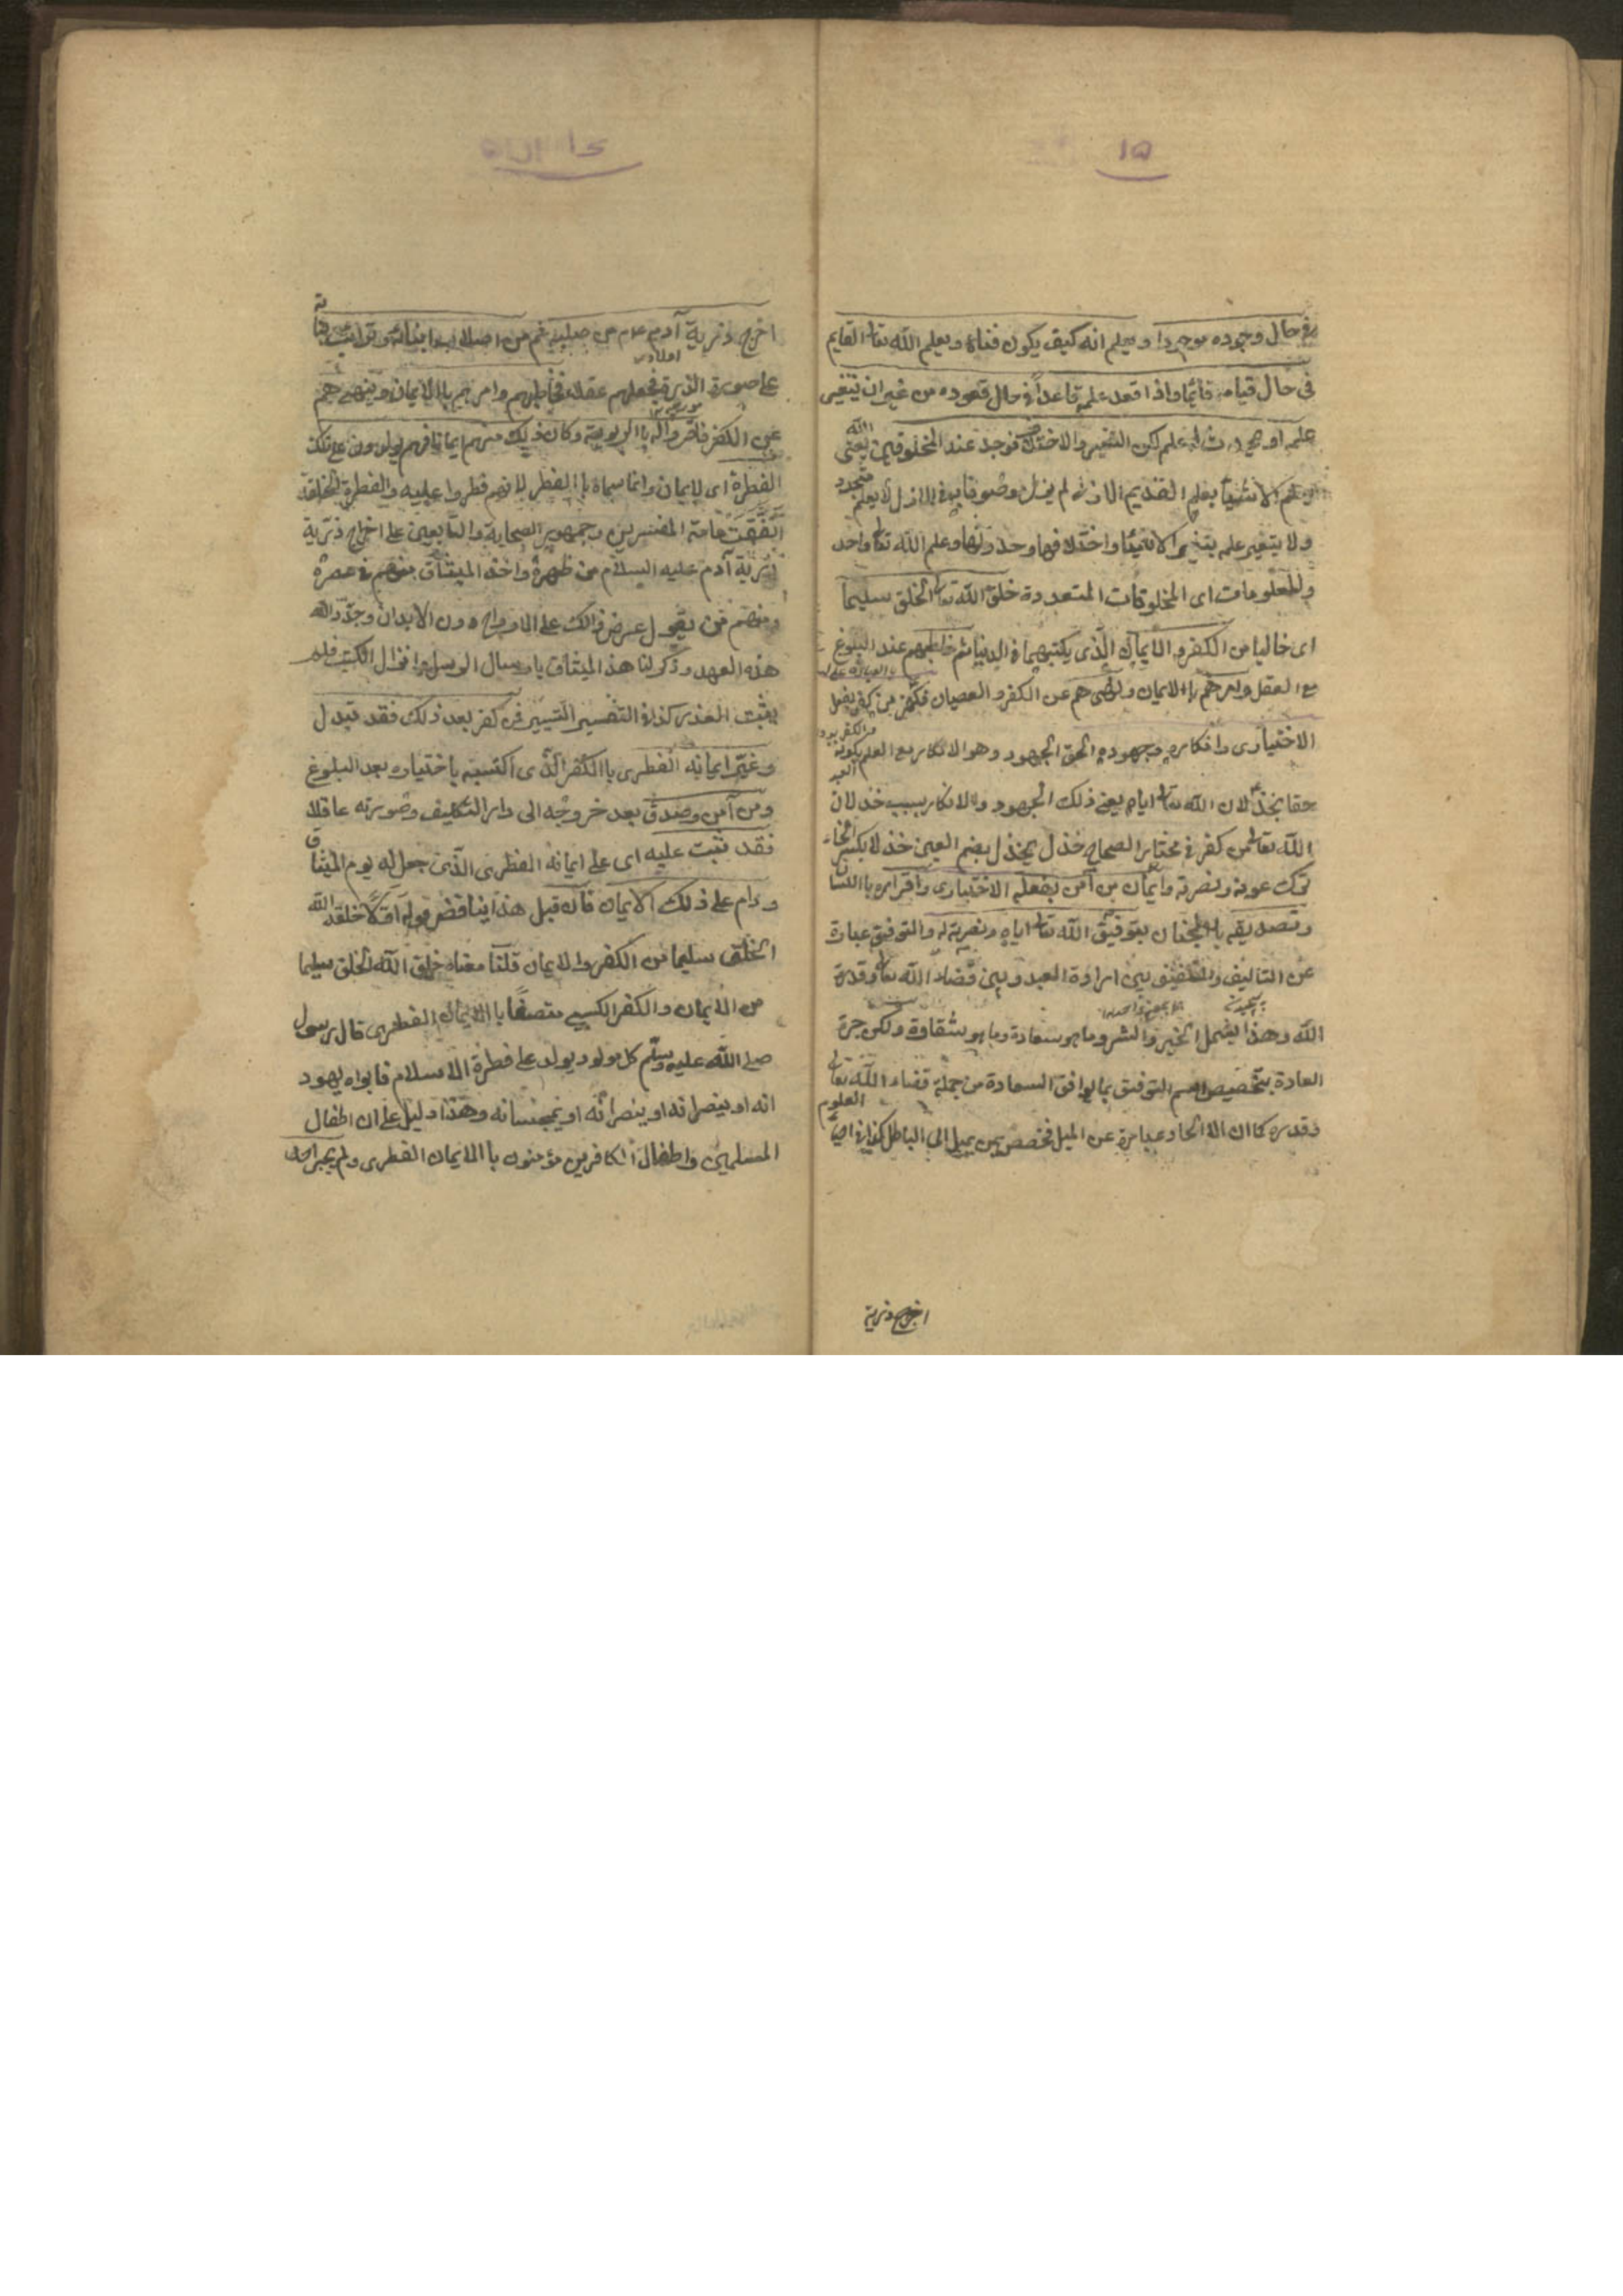 ١٥
في حال وجوده موجودا ويعلم انه كيف يكون فناؤه ويعلم الله تعا القايم
في حال قيامه قائما واذا قعد علمه قاعدا في حال قعوده من غير ان يتغير
علمه او يحدث له علم لكن التغير والاختلاف يوجد عند المخلوقين يعني الله
يعلم الاشياء بعلمه القديم الازلي لم يزل موصوفا به في الازل لا بعلم متجدد
ولا يتغير علمه بتغير الاشياء واختلافها وحدوثها وعلم الله تعا واحد
والمعلومات اى المخلوقات المتعددة خلق الله تعا الخلق سليما
اى خاليا من الكفر والايمان الذى يكتسبهما في الدنيا ثم خاطبهم عند البلوغ
مع العقل وامرهم باالايمان ونهى هم عن الكفر والعصيان فكفر من كفر بفعله
الاختيارى وانكاره وجهوده الحق الجهود وهو الانكار مع العلم بكونه
حقا بخذلان الله تعا اياه يعني ذلك الجهود والانكار بسبب خذلان
الله تعا لمن كفر في مختار الصحاح خذل يخذل بضم العين خذلا بكسر الخاء
ترك عونه ونصرته وايمان من آمن بفعله الاختيارى واقراره باللسا
وتصديقه بالجنان بتوفيق الله تعا اياه ونصرته له والتوفيق عبارة
عن التاليف والتلفيق بين ارادة العبد وبين قضاء الله تعا وقدره
الله وهذا يشمل الخير والشر وما هو سعادة وما هو شقاوة ولكن جرت
العادة بتخصيص اسم التوفيق بما يوافق السعادة من جملة قضاء الله تعا
وقدره كما ان الالحاد عبارة عن الميل فخصص بمن يميل الى الباطل كذا في احيا
العلوم
اخرج ذرية
اخرج ذرية آدم عم من صلبه ثم من اصلاب ابنائه وترائب بناته
على صورة الذر فجعلهم عقلاء فخاطبهم وامرهم باالايمان وينهى هم
عن الكفر فاقروا له باالربوبية وكان ذلك منهم ايمانا فهم يولدون على تلك
الفطرة اى الايمان وانما سماه باالفطر لانهم فطروا عليه والفطرة الخلقة
اتفقت عامة المفسرين وجمهور الصحابة والتابعين على اخراج ذرية
ذرية آدم عليه السلام من ظهره واخذ الميثاق منهم في عصره
ومنهم من يقول عرض ذالك على الارواح دون الابدان وجدد الله
هذه العهد وذكر لنا هذ الميثاق بارسال الرسل وانزال الكتب فلم
يثبت العذر كذا في التفسير التيسير فمن كفر بعد ذلك فقد تبدل
وغير ايمانه الفطرى باالكفر الذى اكتسبه باختياره بعد البلوغ
ومن آمن وصدق بعد خروجه الى دار التكليف وصورته عاقلا
فقد ثبت عليه اى على ايمانه الفطرى الذى جعل له يوم الميثاق
ودام على ذلك الايمان فان قيل هذا يناقض قوله اولا خلق الله
الخلق سليما من الكفر والايمان قلنا معناه خلق الله الخلق سليما
من الايمان والكفر الكسبى متصفا باالايمان الفطرى قال رسول
صلى الله عليه وسلم كل مولود يولد على فطرة الاسلام فابواه يهود
انه او ينصرانه او يمجسانه وهذا دليل على ان اطفال
المسلمين واطفال الكافرين مؤمنون باالايمان الفطرى ولم يجبر احدا